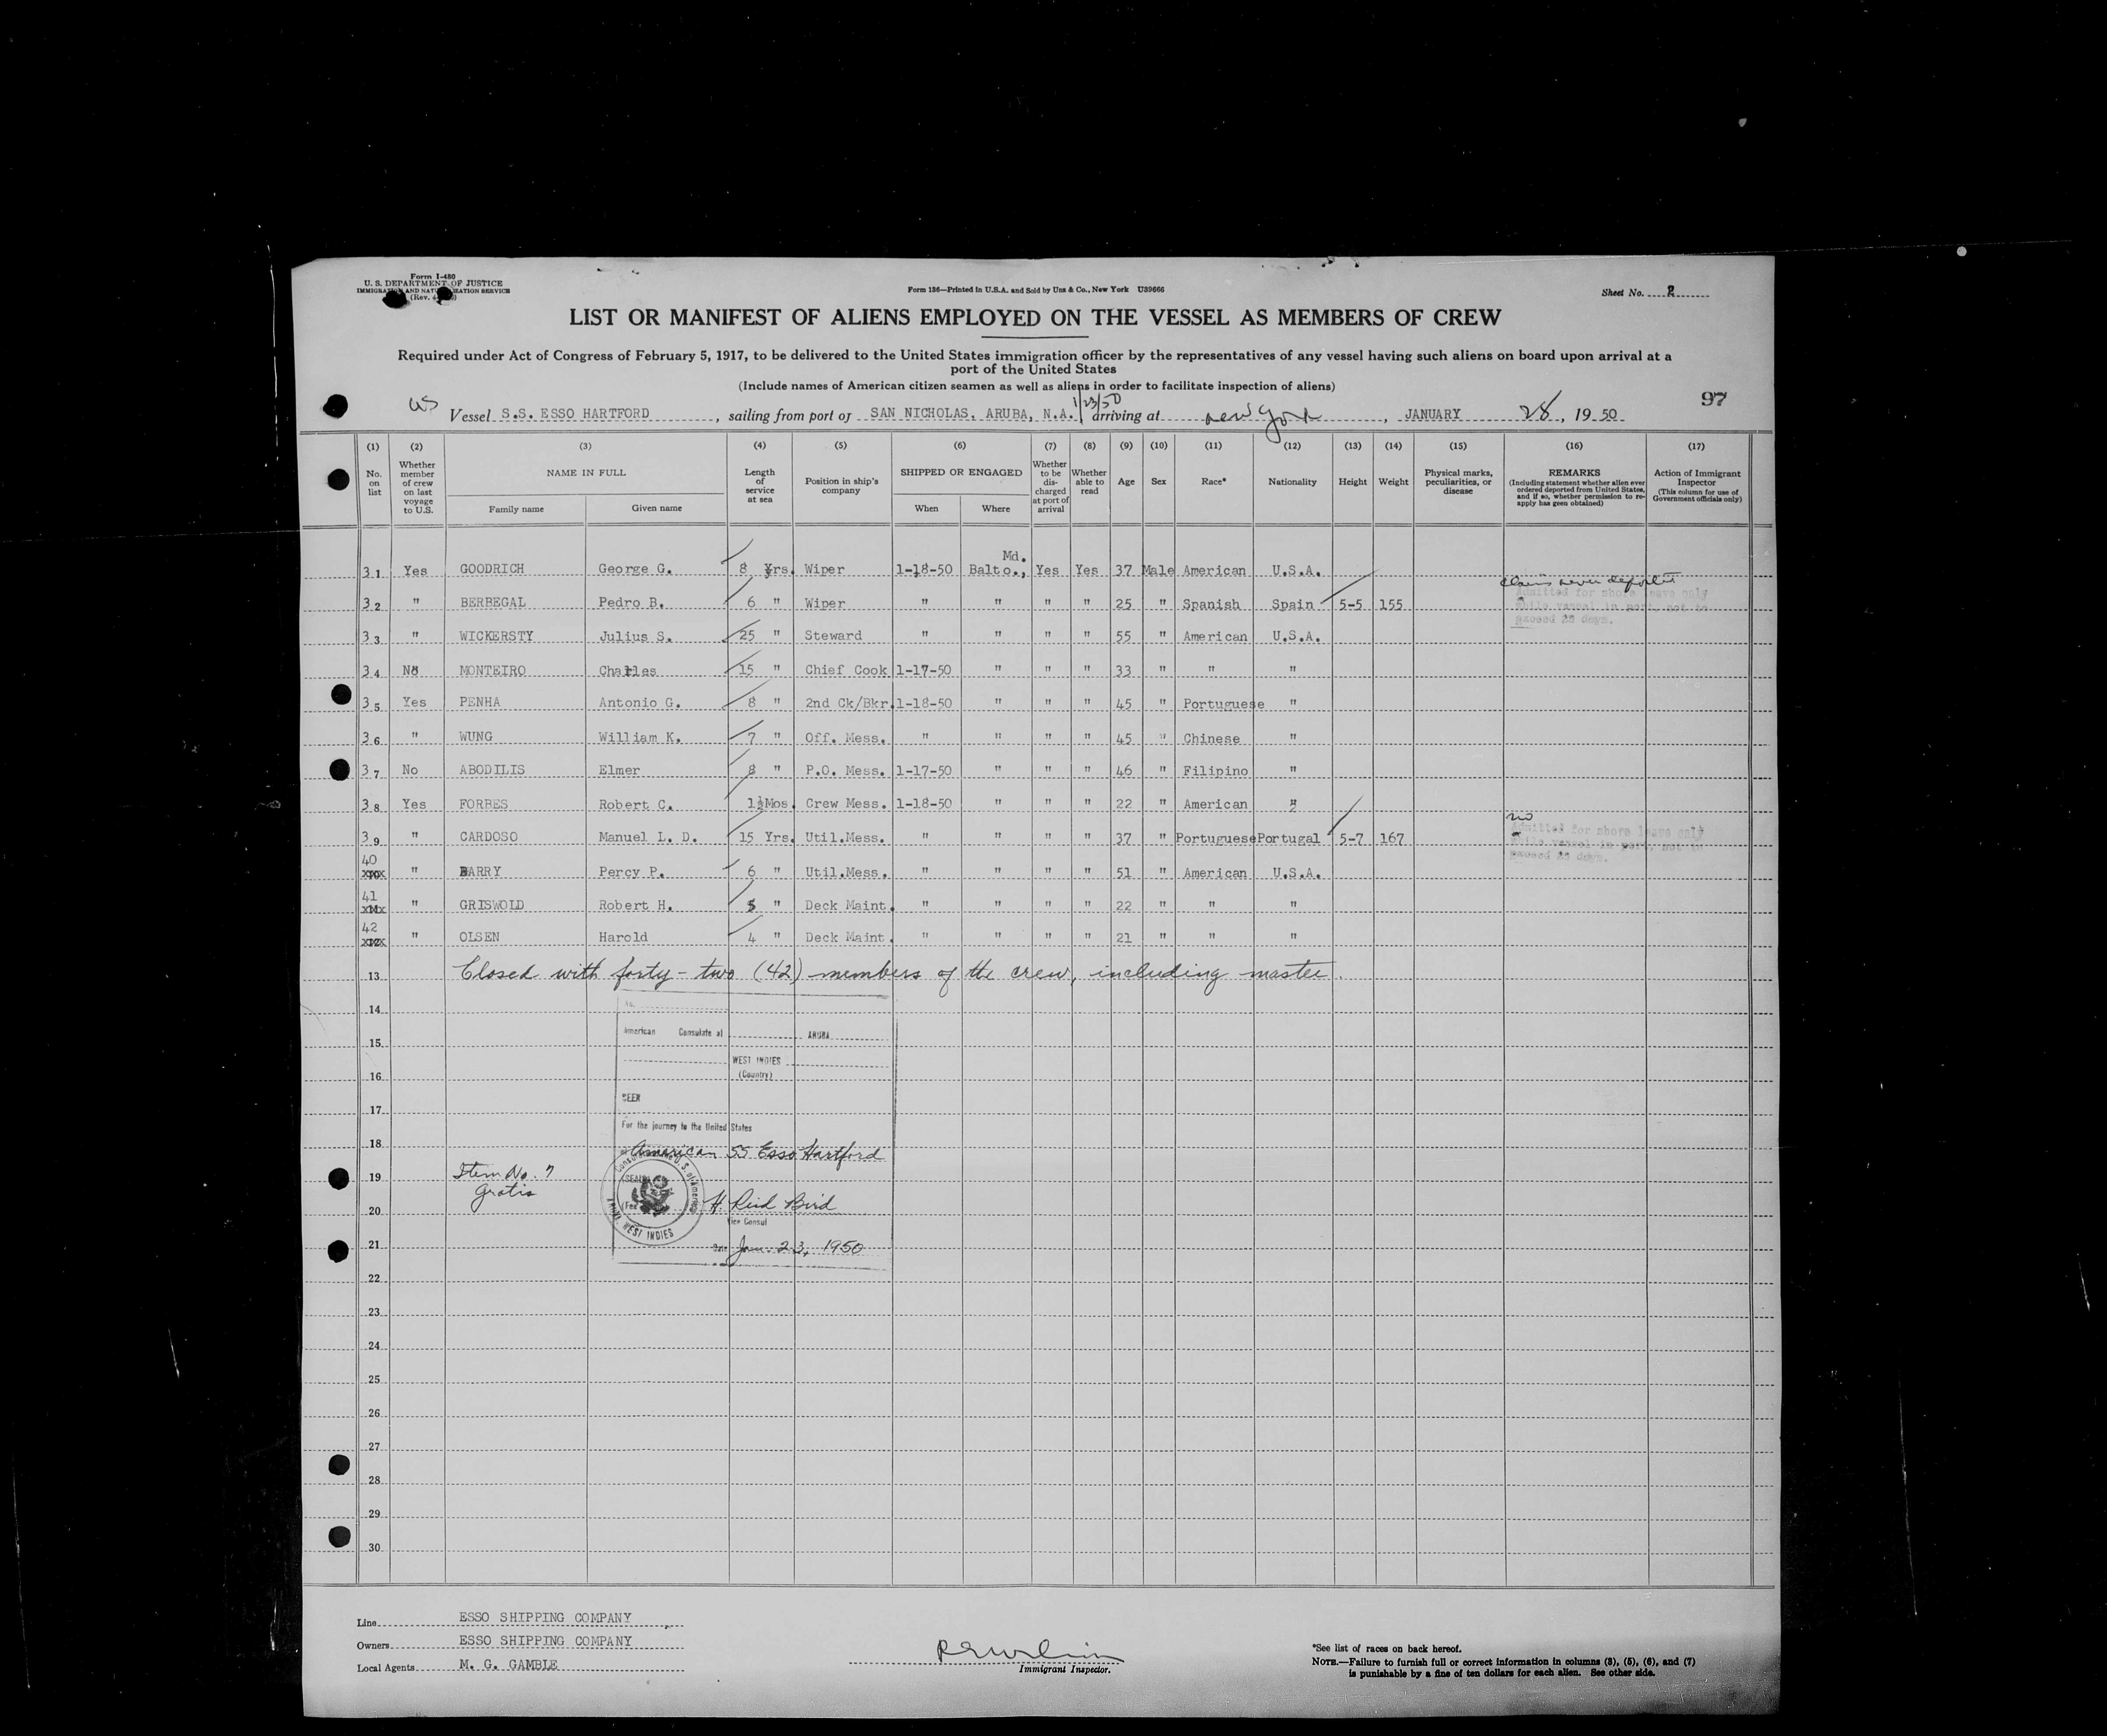 Form I-480
U. S. DEPARTMENT OF JUSTICE
IMMIGRATION AND NATURALIZATION SERVICE
(Rev.
Form 136—Printed in U.S.A. and Sold by Unz & Co., New York U39666
Sheet No. 2
LIST OR MANIFEST OF ALIENS EMPLOYED ON THE VESSEL AS MEMBERS OF CREW
Required under Act of Congress of February 5, 1917, to be delivered to the United States immigration officer by the representatives of any vessel having such aliens on board upon arrival at a
port of the United States
(Include names of American citizen seamen as well as aliens in order to facilitate inspection of aliens)
97
US Vessel S.S. ESSO HARTFORD, sailing from port of SAN NICHOLAS, ARUBA, N.A. 1/23/50 arriving at new york, JANUARY 28, 19 50
(1) (2) (3) (4) (5) (6) (7) (8) (9) (10) (11) (12) (13) (14) (15) (16) (17)
No. on list
Whether member of crew on last voyage to U.S.
NAME IN FULL
Family name Given name
Length of service at sea
Position in ship's company
SHIPPED OR ENGAGED
When Where
Whether to be discharged at port of arrival
Whether able to read
Age Sex Race* Nationality Height Weight
Physical marks, peculiarities, or disease
REMARKS
(Including statement whether alien ever ordered deported from United States, and if so, whether permission to reapply has been obtained)
Action of Immigrant Inspector
(This column for use of Government officials only)
31 Yes GOODRICH George G. 8 Yrs. Wiper 1-18-50 Md. Balto., Yes Yes 37 Male American U.S.A.
claims never deported
32 " BERBEGAL Pedro B. 6 " Wiper " " " " 25 " Spanish Spain 5-5 155 Admitted for shore leave only
while vessel in port, not to
exceed 28 days.
33 " WICKERSTY Julius S. 25 " Steward " " " " 55 " American U.S.A.
34 No MONTEIRO Charles 15 " Chief Cook 1-17-50 " " " 33 " " "
35 Yes PENHA Antonio G. 8 " 2nd Ck/Bkr. 1-18-50 " " " 45 " Portuguese "
36 " WUNG William K. 7 " Off. Mess. " " " " 45 " Chinese "
37 No ABODILIS Elmer 8 " P.O. Mess. 1-17-50 " " " 46 " Filipino "
38 Yes FORBES Robert C. 1½Mos. Crew Mess. 1-18-50 " " " 22 " American "
39 " CARDOSO Manuel L. D. 15 Yrs. Util.Mess. " " " " 37 " Portuguese Portugal 5-7 167 no Admitted for shore leave only
while vessel in port, not to
exceed 28 days.
40 " BARRY Percy P. 6 " Util.Mess. " " " " 51 " American U.S.A.
41 " GRISWOLD Robert H. 5 " Deck Maint. " " " " 22 " " "
42 " OLSEN Harold 4 " Deck Maint. " " " " 21 " " "
13 Closed with forty-two (42) members of the crew, including master.
14 No.
15 American Consulate at ARUBA
WEST INDIES
16 (Country)
SEEN
17
For the journey to the United States
18 American SS Esso Hartford
19 Item No. 7
Gratis
(SEAL)
20 H. Reid Bird
Vice Consul
WEST INDIES
21 Date Jan. 23, 1950
22
23
24
25
26
27
28
29
30
Line ESSO SHIPPING COMPANY
Owners ESSO SHIPPING COMPANY
Local Agents M. G. GAMBLE
Immigrant Inspector.
*See list of races on back hereof.
NOTE.—Failure to furnish full or correct information in columns (3), (5), (6), and (7)
is punishable by a fine of ten dollars for each alien. See other side.